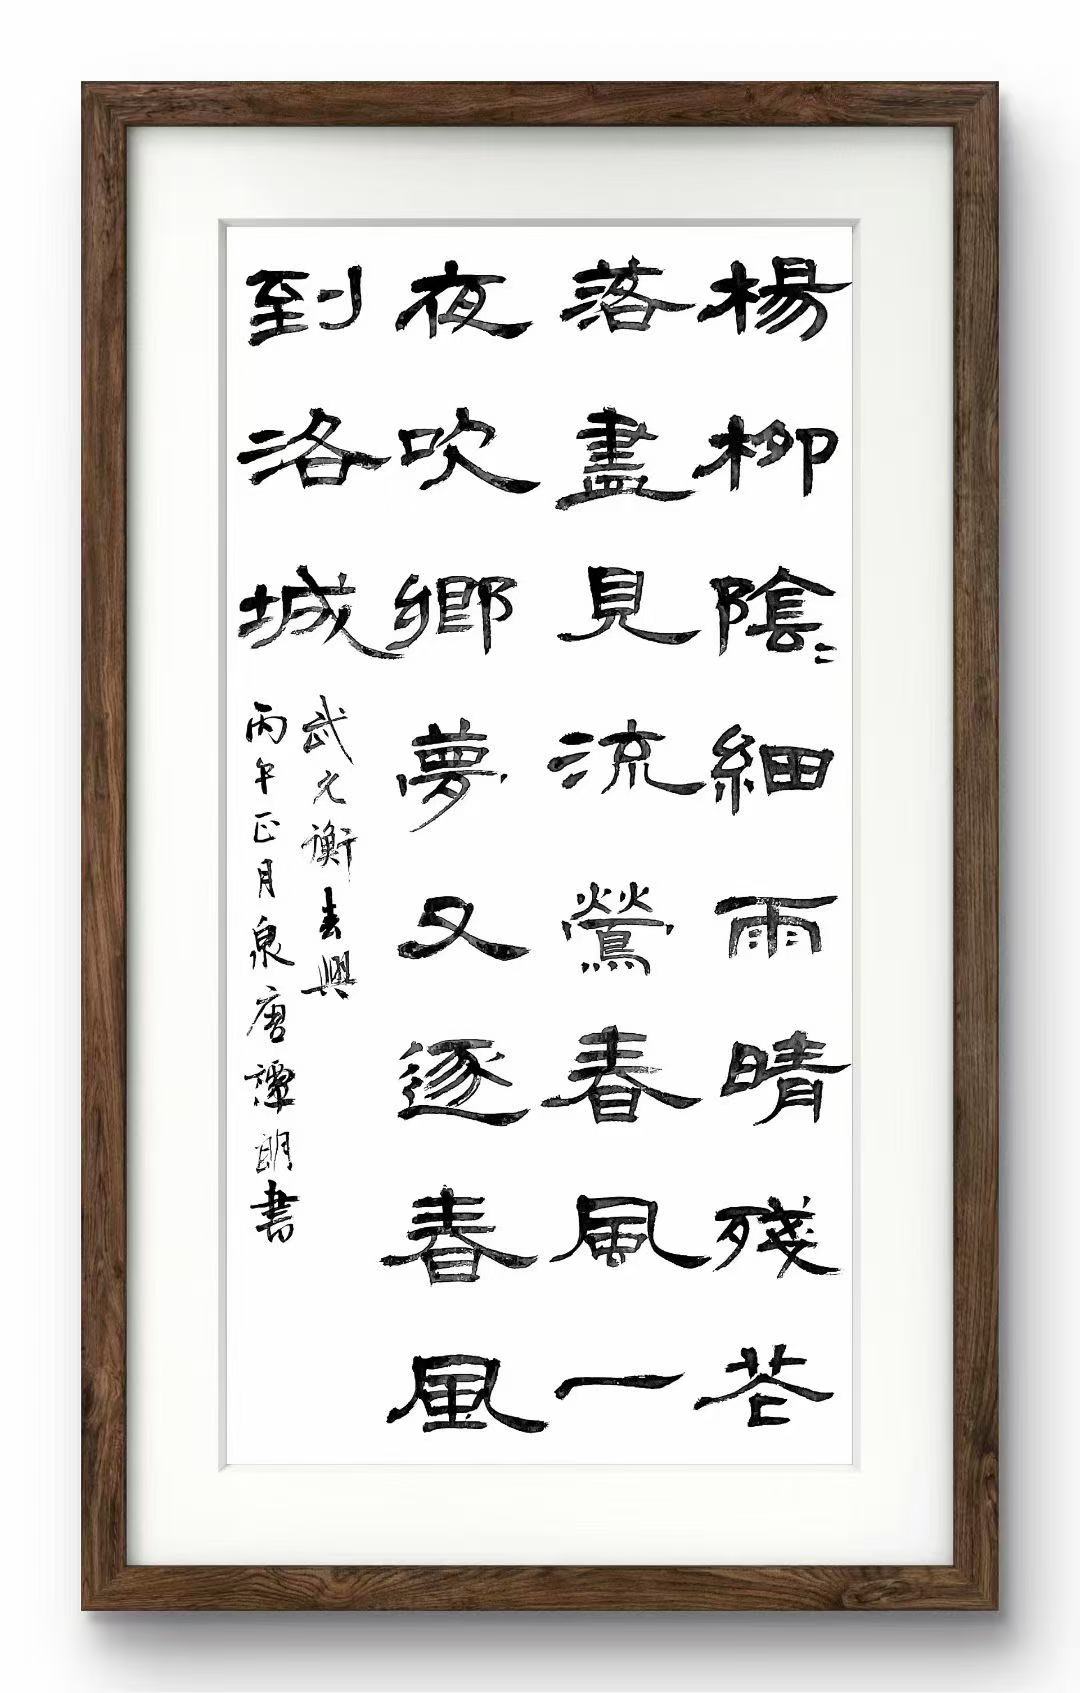 楊柳陰〻細雨晴殘花
落盡見流鶯春風一
夜吹鄉夢又逐春風
到洛城
武元衡春興
丙午正月泉唐譚朗書